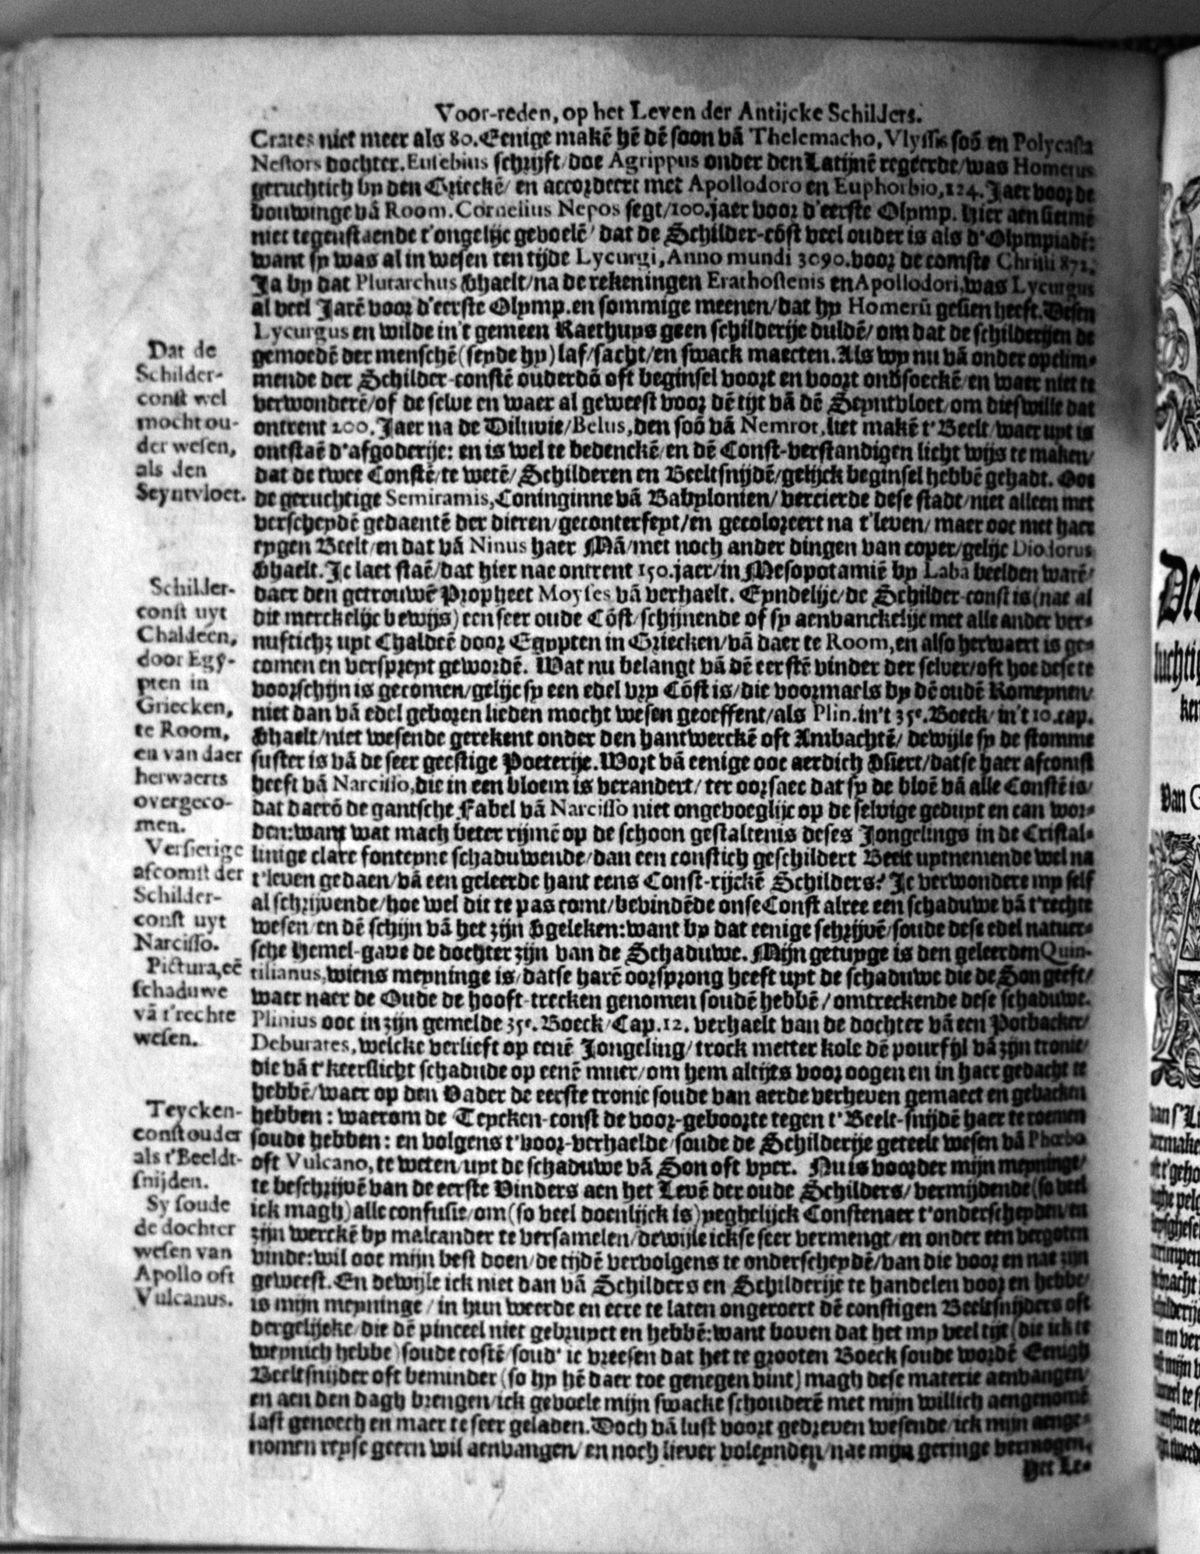 Voor-reden, op het Leven der Antijcke Schilders.
Crates niet meer als 80. Eenige makē hē dē soon vā Thelemacho, Vlyssis soō en Polycasta
Nestors dochter. Eusebius schrijft/ doe Agrippus onder den Latijnē regeerde/ was Homerus
geruchtich by den Grieckē/ en accordeert met Apollodoro en Euphorbio, 124. Jaer voor de
bouwinge vā Room. Cornelius Nepos segt/ 100. jaer voor d'eerste Olymp. Hier aen sietmē
niet tegenstaende t'ongelijc gevoelē/ dat de Schilder-cōst veel ouder is als d'Olympiadē:
want sy was al in wesen ten tijde Lycurgi, Anno mundi 3090. voor de comste Christi 872.
Ja by dat Plutarchus vhaelt/ na de rekeningen Erathostenis en Apollodori, was Lycurgus
al veel Jarē voor d'eerste Olymp. en sommige meenen/ dat hy Homerū gesien heeft. Desen
Lycurgus en wilde in't gemeen Raethuys geen schilderije duldē/ om dat de schilderijen de
gemoedē der menschē (seyde hy) laf/ sacht/ en swack maecten. Als wy nu vā onder opclim-
mende der Schilder-constē ouderdō oft beginsel voort en voort ondsoeckē/ en waer niet te
verwonderē/ of de selve en waer al geweest voor dē tijt vā dē Seyntvloet/ om dieswille dat
ontrent 200. Jaer na de Diluvie/ Belus, den soō vā Nemrot, liet makē t'Beelt/ waer uyt is
ontstaē d'afgoderije: en is wel te bedenckē/ en dē Const-verstandigen licht wijs te maken/
dat de twee Constē/ te wetē/ Schilderen en Beeltsnijdē/ gelijck beginsel hebbē gehadt. Ooc
de geruchtige Semiramis, Coninginne vā Babylonien/ vercierde dese stadt/ niet alleen met
verscheydē gedaentē der dieren/ geconterfeyt/ en gecoloreert na t'leven/ maer ooc met haer
eygen Beelt/ en dat vā Ninus haer Mā/ met noch ander dingen van coper/ gelijc Diodorus
vhaelt. Jc laet staē/ dat hier nae ontrent 150. jaer/ in Mesopotamiē by Laba beelden warē/
daer den getrouwē Propheet Moyses vā verhaelt. Eyndelijc/ de Schilder-const is (nae al
die merckelijc bewijs) een seer oude Cōst/ schijnende of sy aenvanckelijc met alle ander ver-
nuftichz uyt Chaldeē door Egypten in Griecken/ vā daer te Room, en also herwaert is ge-
comen en verspreyt gewordē. Wat nu belangt vā dē eerstē vinder der selver/ oft hoe dese te
voorschijn is gecomen/ gelijc sy een edel vry Cōst is/ die voormaels by dē oudē Romeynen/
niet dan vā edel geboren lieden mocht wesen geoeffent/ als Plin. in't 35e. Boeck/ in't 10. cap.
vhaelt/ niet wesende gerekent onder den hantwerckē oft Ambachtē/ dewijle sy de stomme
suster is vā de seer geestige Poeterije. Wort vā eenige ooc aerdich vsiert/ datse haer afcomst
heeft vā Narcisso, die in een bloem is verandert/ ter oorsaec dat sy de bloē vā alle Constē is/
dat daerō de gantsche Fabel vā Narcisso niet ongevoeglijc op de selvige geduyt en can wor-
den: want wat mach beter rijmē op de schoon gestaltenis deses Jongelings in de Cristal-
linige clare fonteyne schaduwende/ dan een constich geschildert Beelt uytnemende wel na
t'leven gedaen/ vā een geleerde hant eens Const-rijckē Schilders? Jc verwondere my self
al schrijvende/ hoe wel dit te pas comt/ bevindēde onse Const alree een schaduwe vā t'rechte
wesen/ en dē schijn vā het zijn vgeleken: want by dat eenige schrijvē/ soude dese edel natuer-
sche Hemel-gave de dochter zijn van de Schaduwe. Mijn getuyge is den geleerden Quin-
tilianus, wiens meyninge is/ datse harē oorsprong heeft uyt de schaduwe die de Son geeft/
waer naer de Oude de hooft-trecken genomen soudē hebbē/ omtreckende dese schaduwe.
Plinius ooc in zijn gemelde 35e. Boeck/ Cap. 12. verhaelt van de dochter vā een Potbacker/
Deburates, welcke verlieft op eenē Jongeling/ trock metter kole dē pourfijl vā zijn tronie/
die vā t'keerslicht schadude op eenē muer/ om hem altijts voor oogen en in haer gedacht te
hebbē/ waer op den Vader de eerste tronie soude van aerde verheven gemaect en gebacken
hebben: waerom de Teycken-const de voor-geboorte tegen t'Beelt-snijdē haer te roemen
soude hebben: en volgens t'voor-verhaelde/ soude de Schilderije geteelt wesen vā Phœbo
oft Vulcano, te weten/ uyt de schaduwe vā Son oft vyer. Nu is voorder mijn meyninge/
te beschrijvē van de eerste Vinders aen het Levē der oude Schilders/ vermijdende (so veel
ick magh) alle confusie/ om (so veel doenlijck is) yeghelijck Constenaer t'onderscheyden/ en
zijn werckē by malcander te versamelen/ dewijle ickse seer vermengt/ en onder een vergoten
vinde: wil ooc mijn best doen/ de tijdē vervolgens te onderscheydē/ van die voor en nae zijn
geweest. En dewijle ick niet dan vā Schilders en Schilderije te handelen voor en hebbe/
is mijn meyninge/ in hun weerde en eere te laten ongeroert dē constigen Beeltsnijders oft
dergelijcke/ die dē pinceel niet gebruyct en hebbē: want boven dat het my veel tijt (die ick te
weynich hebbe) soude costē/ soud' ic vreesen dat het te grooten Boeck soude wordē. Eenigh
Beeltsnijder oft beminder (so hy hē daer toe genegen vint) magh dese materie aenvangen/
en aen den dagh brengen/ ick gevoele mijn swacke schouderē met mijn willich aengenomē
last genoech en maer te seer geladen. Doch vā lust voort gedreven wesende/ ick mijn aenge-
nomen reyse geern wil aenvangen/ en noch liever voleynden/ nae mijn geringe vermogen.
Het Le-
Dat de
Schilder-
const wel
mocht ou-
der wesen,
als den
Seyntvloet.
Schilder-
const uyt
Chaldeen,
door Egy-
pten in
Griecken,
te Room,
en van daer
herwaerts
overgeco-
men.
Versierige
afcomst der
Schilder-
const uyt
Narcisso.
Pictura, eē
schaduwe
vā t'rechte
wesen.
Teycken-
const ouder
als t'Beeldt-
snijden.
Sy soude
de dochter
wesen van
Apollo oft
Vulcanus.